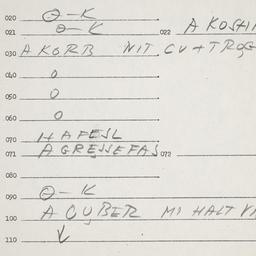 020 Θ-K
021 Θ-K 022 A KOSHI
030 A KORB NIT CU+TROG
040 O
050 O
060 O
070 HAFESL
071 A GRESSEFAS 072
080
090 Θ-K
100 A OUBER MI HALT
110 ↓